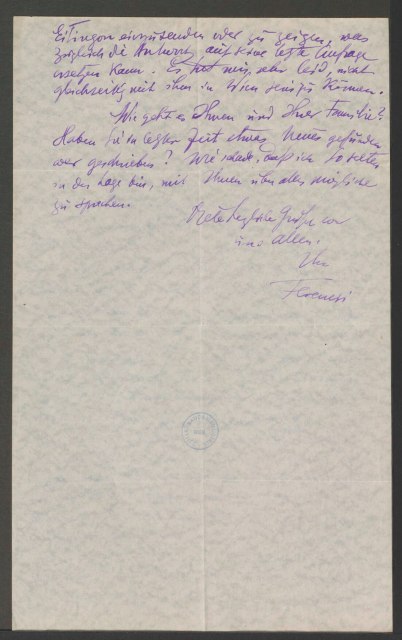 Eitingon einzusenden oder zu zeigen, was
zugleich die Antwort auf seine letzte Umfrage
ersetzen kann. Es tut mir sehr leid, nicht
gleichzeitig mit ihm in Wien sein zu können.
Wie geht es Ihnen und Ihrer Familie?
Haben Sie in letzter Zeit etwas Neues gefunden
oder geschrieben? Wie schade, daß ich so selten
in der Lage bin, mit Ihnen über alles mögliche
zu sprechen.
Viele herzliche Grüße von
uns allen.
Ihr
Ferenczi